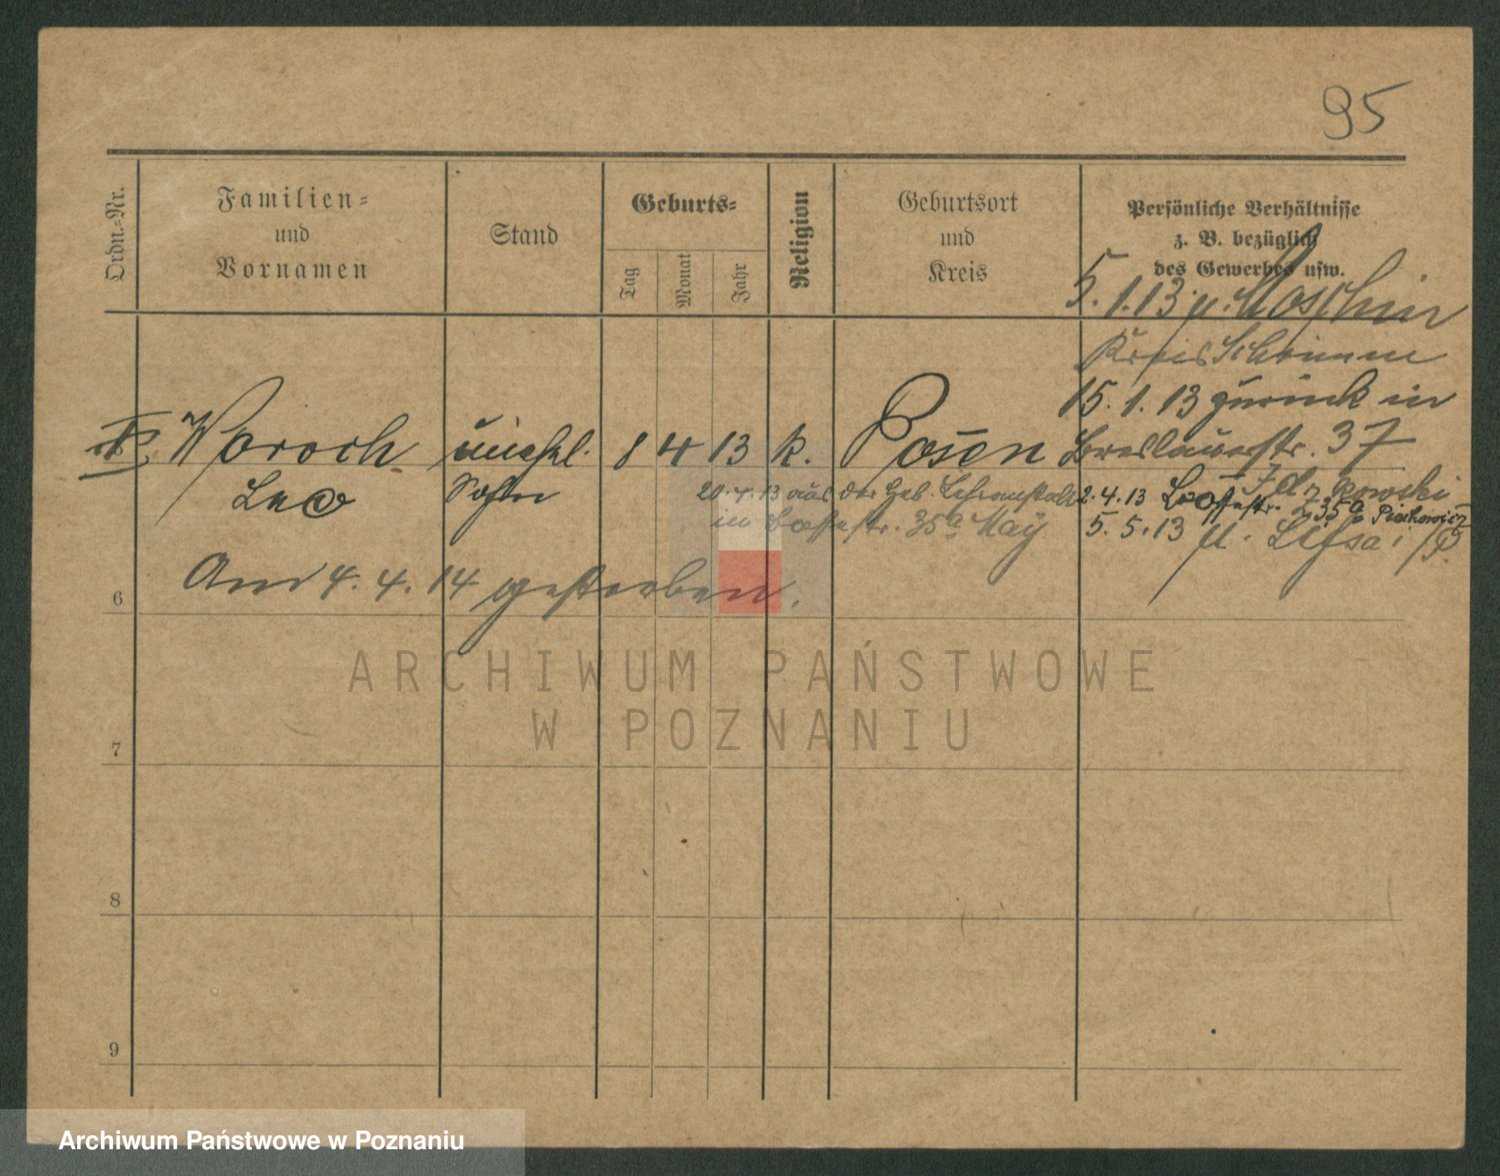 95
Ordn.-Nr.
Familien-
und
Vornamen
Stand
Geburts-
Tag
Monat
Jahr
Religion
Geburtsort
und
Kreis
Persönliche Verhältnisse
z. B. bezüglich
des Gewerbes usw.
5. 1. 13 n. Moschin
Kreis Schrimm
15. 1. 13 zurück in
Woroch unehl. 8 4 13 k. Posen Breslauerstr. 37
Leo 20. 4. 13 aus der Geb. Lehranstalt 2. 4. 13
in 35a May 5. 5. 13 n. Lissa i/P.
Am 4. 4. 14 gestorben.
6
7
8
9
ARCHIWUM PAŃSTWOWE
W POZNANIU
Archiwum Państwowe w Poznaniu